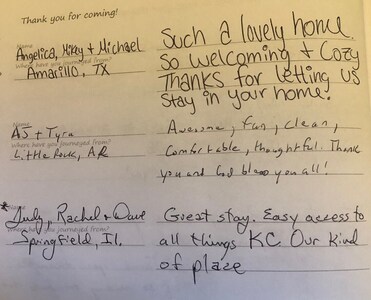 Thank you for coming!
Name
Angelica, Mikey + Michael
Where have you journeyed from?
Amarillo, TX
Such a lovely home.
So welcoming + Cozy
Thanks for letting us
stay in your home!
Name
AJ + Tyra
Where have you journeyed from?
Little Rock, AR
Awesome, fun, clean,
comfortable, thoughtful. Thank
you and God bless you all!
* Judy, Rachel + Dave
Where have you journeyed from?
Springfield, Il.
Great stay. Easy access to
all things KC Our kind
of place